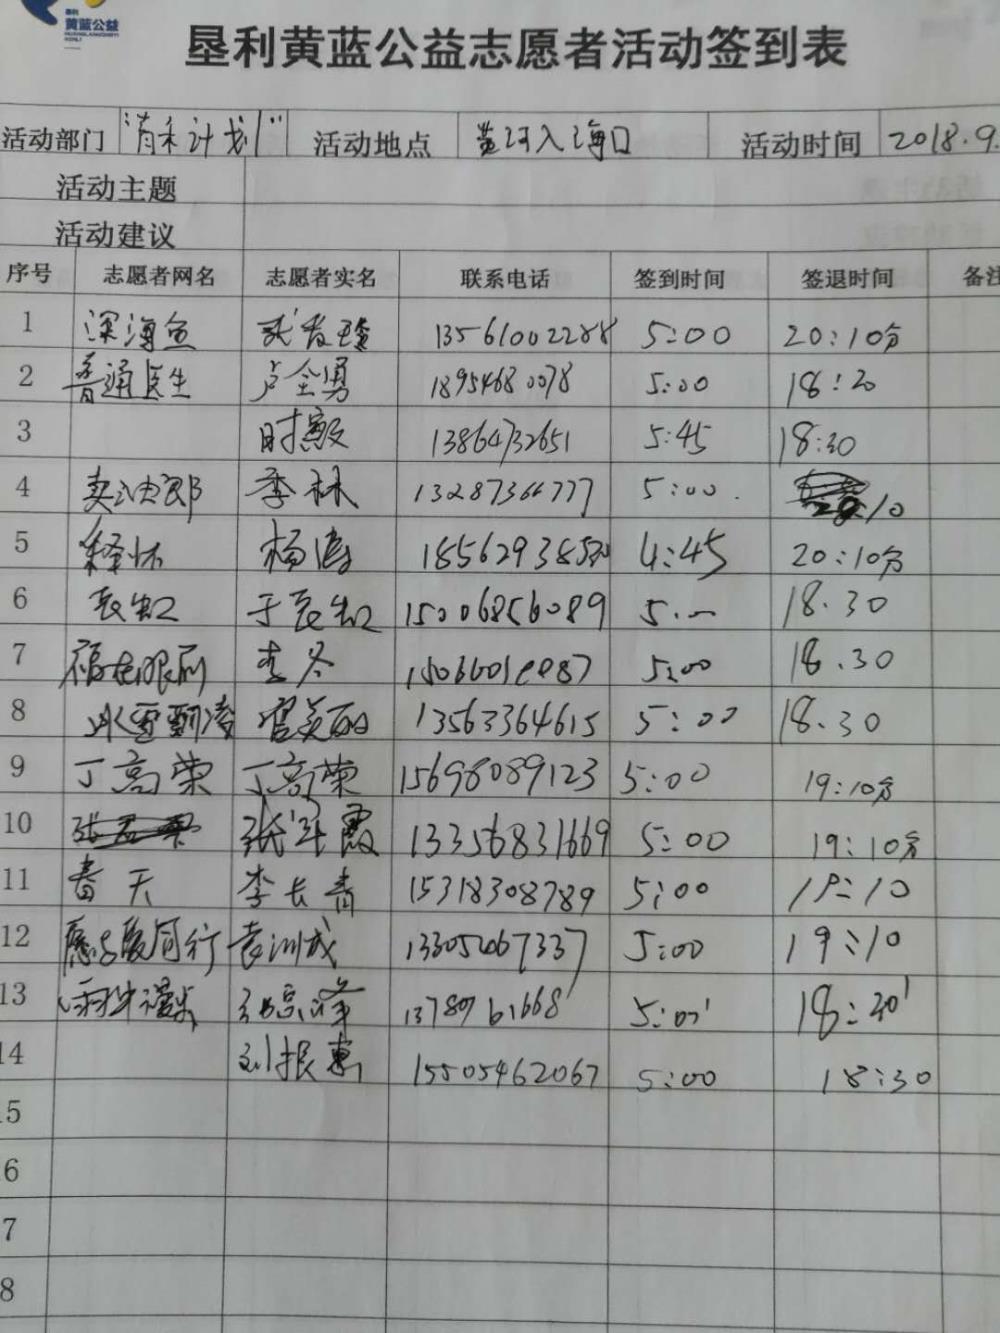 垦利
黄蓝公益
垦利黄蓝公益志愿者活动签到表
活动部门 "青禾计划" 活动地点 黄河入海口 活动时间 2018.9.
活动主题
活动建议
序号 志愿者网名 志愿者实名 联系电话 签到时间 签退时间 备注
1 深海鱼 13561002288 5:00 20:10分
2 普通医生 卢全勇 18954680078 5:00 18:20
3 时毅 13864732651 5:45 18:30
4 卖油郎 李林 13287366777 5:00. 10
5 释怀 杨涛 4:45 20:10分
6 长虹 于长虹 15006856089 5. 18.30
7 福在眼前 李冬 5:00 18.30
8 13563364615 5:00 18.30
9 丁高荣 丁高荣 15698089123 5:00 19:10分
10 张 霞 13356831669 5:00 19:10分
11 春天 李长青 15318308789 5:00 19:10
12 愿与爱同行 袁训成 5:00 19:10
13 雨中漫步 5:00' 18:20'
14 刘振惠 15505462067 5:00 18:30
5
6
7
8